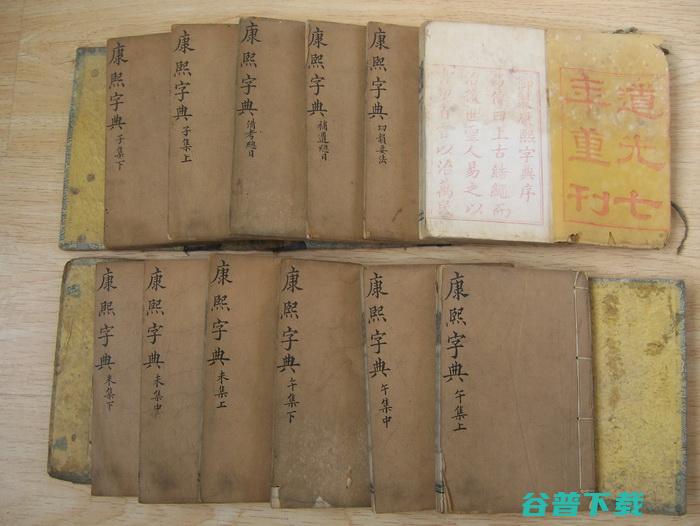 道光七
年重刊
御製康熙字典序
易傳曰上古結繩而
治後世聖人易之以
書契百官以治萬民
康熙字典 切韻要法
康熙字典 補遺總目
康熙字典 備考總目
康熙字典 子集上
康熙字典 子集下
康熙字典 午集上
康熙字典 午集中
康熙字典 午集下
康熙字典 未集上
康熙字典 未集中
康熙字典 未集下
谷普下载